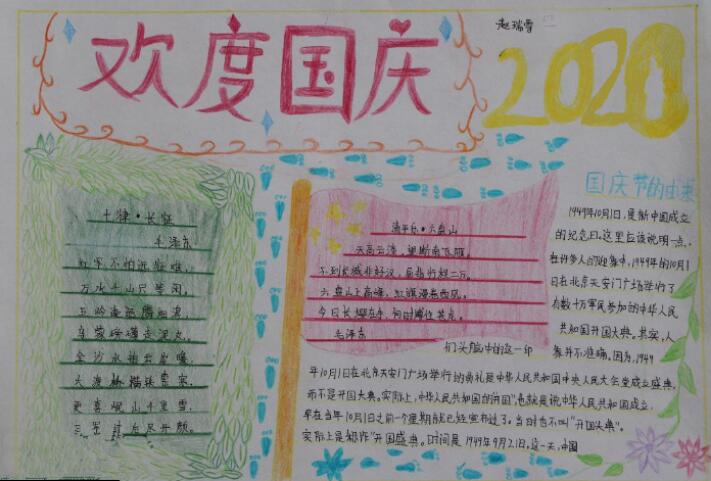 欢度国庆
赵瑞雪
2020
七律·长征
毛泽东
红军不怕远征难,
万水千山只等闲。
五岭逶迤腾细浪,
乌蒙磅礴走泥丸。
金沙水拍云崖暖,
大渡桥横铁索寒。
更喜岷山千里雪,
三军过后尽开颜。
清平乐·六盘山
天高云淡,望断南飞雁。
不到长城非好汉,屈指行程二万。
六盘山上高峰,红旗漫卷西风。
今日长缨在手,何时缚住苍龙。
毛泽东
国庆节的由来
1949年10月1日,是新中国成立
的纪念日。这里应该说明一点,
在许多人的印象中,1949年的10月1
日在北京天安门广场举行了
有数十万军民参加的中华人民
共和国开国大典。其实,人
们头脑中的这一印
象并不准确。因为,1949
年10月1日在北京天安门广场举行的典礼是中华人民共和国中央人民政府成立盛典,
而不是开国大典。实际上,中华人民共和国的"开国",也就是说中华人民共和国成立,
早在当年10月1日之前一个星期就已经宣布过了。当时也不叫"开国大典"。
实际上是称作"开国盛典。时间是1949年9月21日。这一天,中国